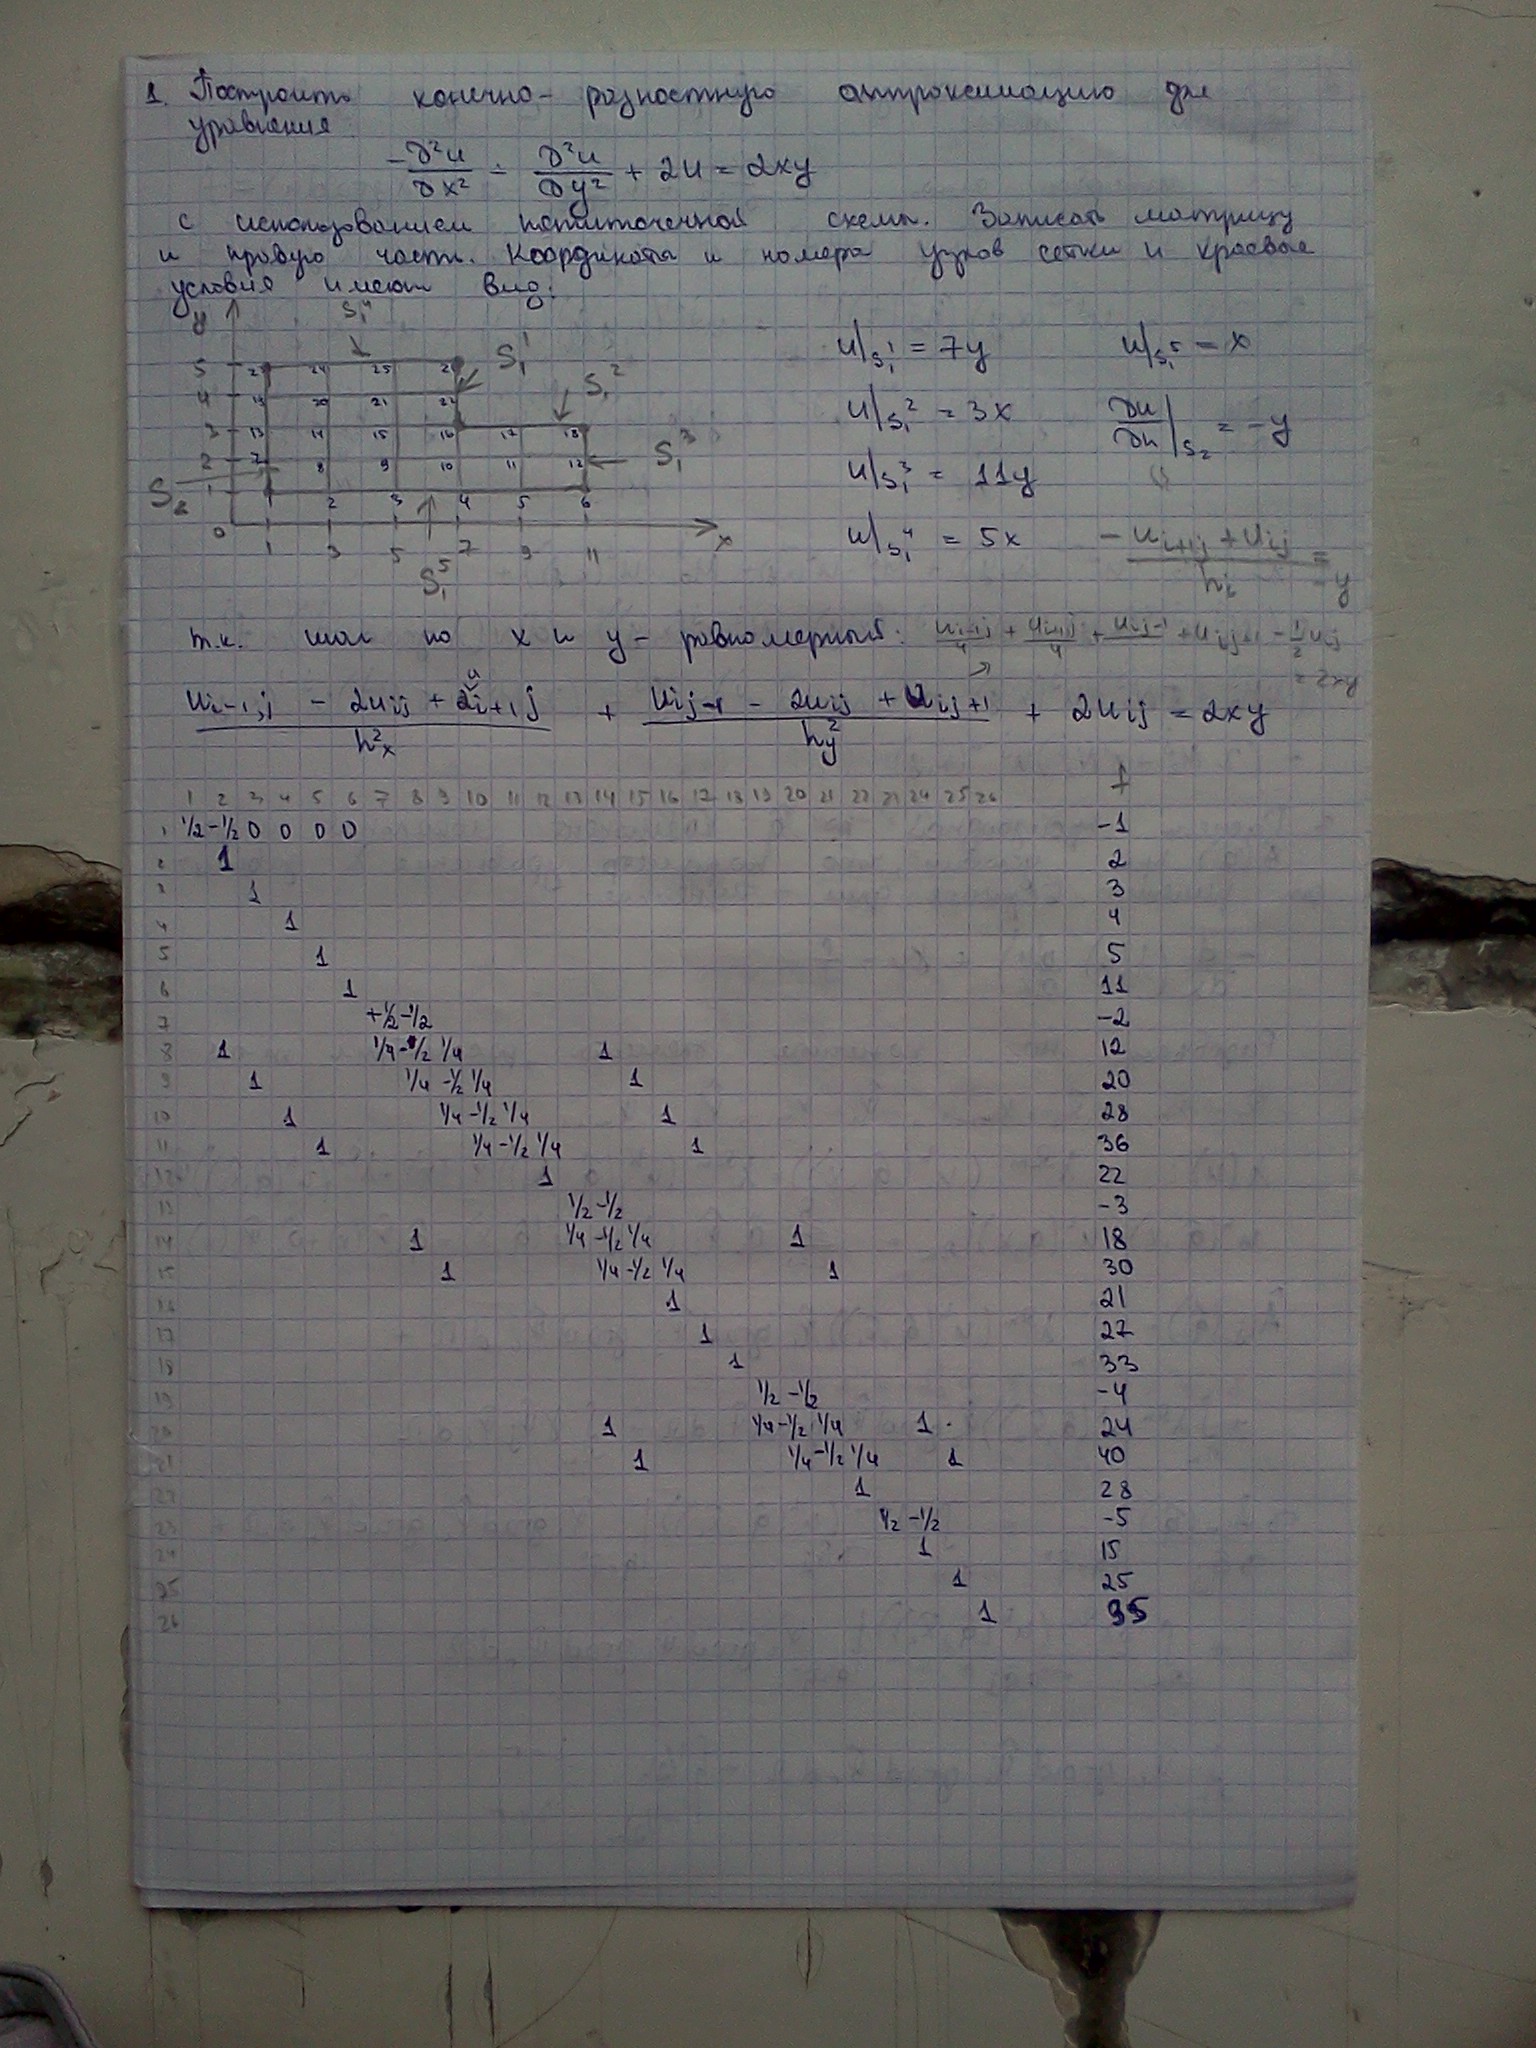 1. Построить конечно-разностную аппроксимацию для
уравнения
-∂²u/∂x² - ∂²u/∂y² + 2u = 2xy
с использованием пятиточечной схемы. Записать матрицу
и правую часть. Координаты и номера узлов сетки и краевые
условия имеют вид:
y S₁⁴
5 23 24 25 26 S₁¹
4 19 20 21 22 S₁²
3 13 14 15 16 17 18
2 7 8 9 10 11 12 S₁³
S₂ 1 1 2 3 4 5 6
0 1 3 5 7 9 11 x
S₁⁵
u|S₁¹ = 7y u|S₁⁵ = x
u|S₁² = 3x ∂u/∂n|S₂ = -y
u|S₁³ = 11y
u|S₁⁴ = 5x
т.к. шаг по x и y - равномерный:
(uᵢ₋₁,ⱼ - 2uᵢⱼ + uᵢ₊₁ⱼ)/h²ₓ + (uᵢⱼ₋₁ - 2uᵢⱼ + uᵢⱼ₊₁)/h²y + 2uᵢⱼ = 2xy
1 2 3 4 5 6 7 8 9 10 11 12 13 14 15 16 17 18 19 20 21 22 23 24 25 26 f
1 1/2 -1/2 0 0 0 0 -1
2 1 2
3 1 3
4 1 4
5 1 5
6 1 11
7 +1/2 -1/2 -2
8 1 1/4 -1/2 1/4 1 12
9 1 1/4 -1/2 1/4 1 20
10 1 1/4 -1/2 1/4 1 28
11 1 1/4 -1/2 1/4 1 36
12 1 22
13 1/2 -1/2 -3
14 1 1/4 -1/2 1/4 1 18
15 1 1/4 -1/2 1/4 1 30
16 1 21
17 1 27
18 1 33
19 1/2 -1/2 -4
20 1 1/4 -1/2 1/4 1 24
21 1 1/4 -1/2 1/4 1 40
22 1 28
23 1/2 -1/2 -5
24 1 15
25 1 25
26 1 35